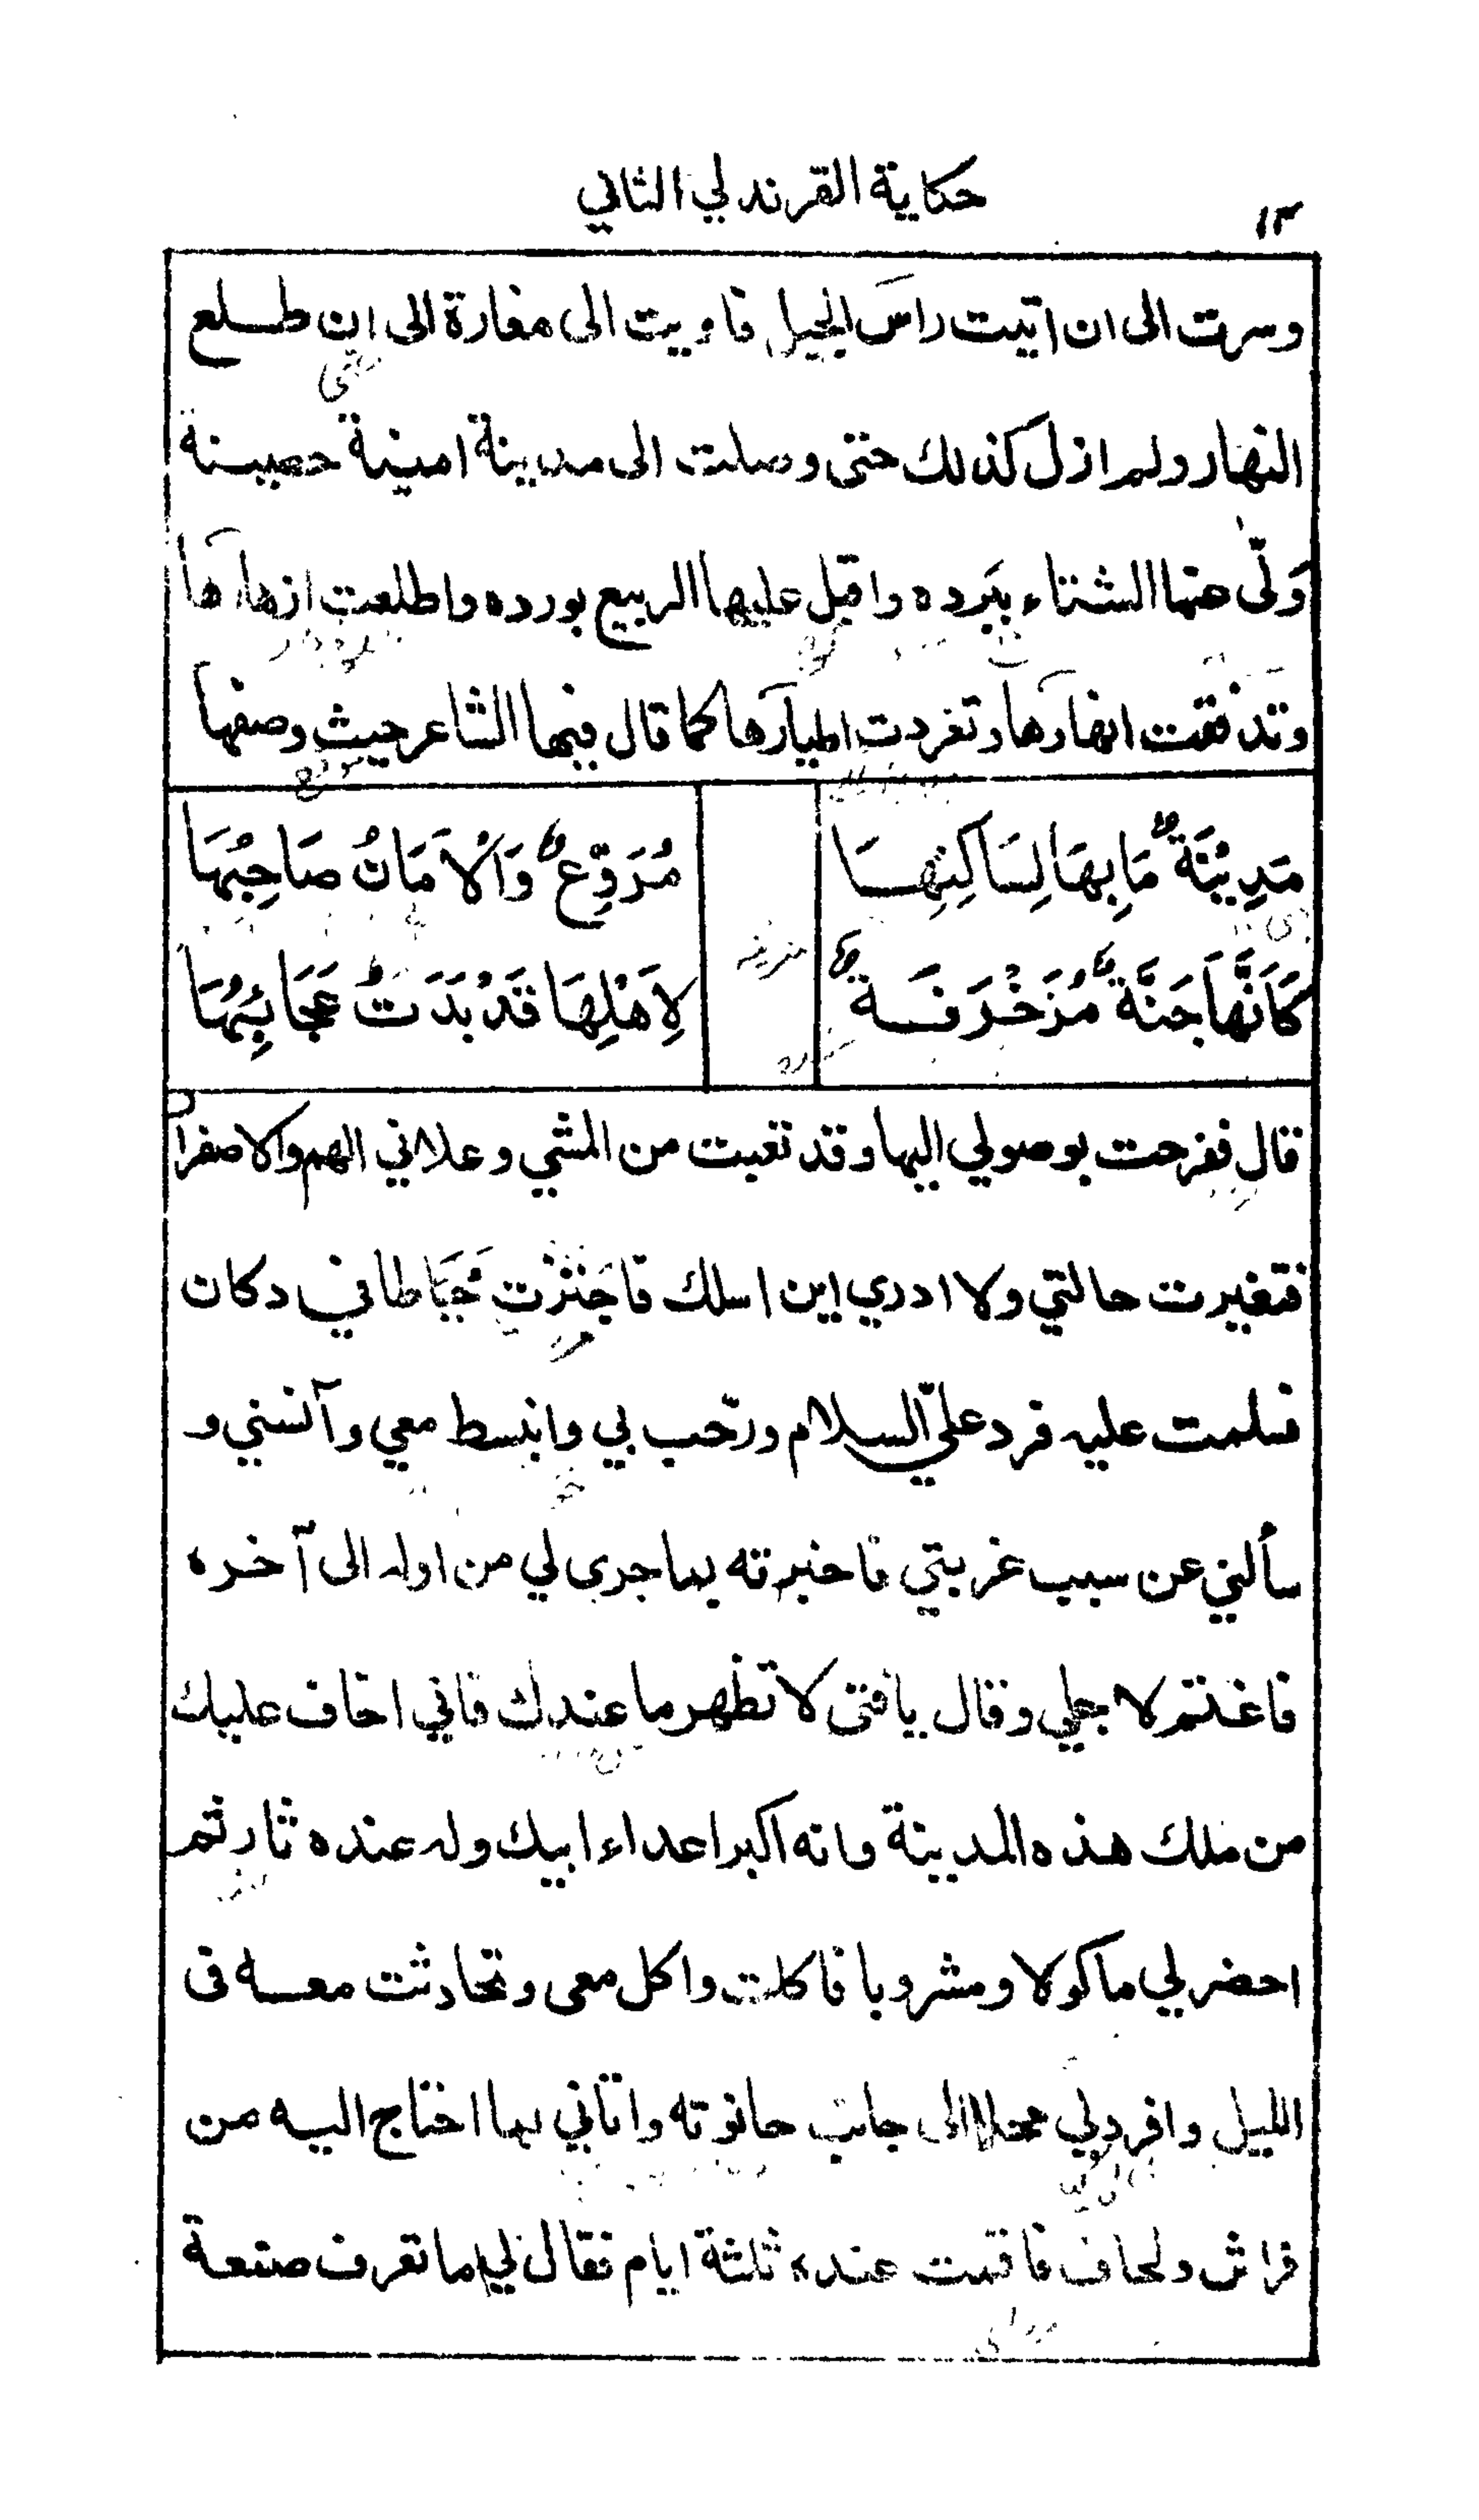 حكاية القرندلي الثاني
١٣
وسرت الى ان اتيت راسَ الجبل فاويت الى مغارة الى ان طلع
النهار ولم ازل كذلك حتى وصلت الى مدينة امينة حصينة
وَلّى عنها الشتاء ببَرده واقبل عليها الربيع بورده واطلعت ازهارها
وتدفقت انهارها وتغردت اطيارها كما قال فيها الشاعر حيث وصفها
مَدِيْنَةٌ مَا بِهَا لِسَاكِنِهَا مُرَوِّعٌ وَالْاَمَانُ صَاحِبُهَا
كَاَنَّهَا جَنَّةٌ مُزَخْرَفَةٌ لِاَهْلِهَا قَدْ بَدَتْ عَجَائِبُهَا
قال ففرحت بوصولي اليها وقد تعبت من المشي وعلاني الهم والاصفرار
فتغيرت حالتي ولا ادري اين اسلك فاجتزت خياطا في دكان
فسلمت عليه فرد عليّ السلام ورحّب بي وانبسط معي وآنسني و
سألني عن سبب غربتي فاخبرته بما جرى لي من اوله الى آخره
فاغتم لاجلي وقال يا فتى لا تظهر ما عندك فاني اخاف عليك
من ملك هذه المدينة فانه اكبر اعداء ابيك وله عنده ثار ثم
احضر لي ماكولا ومشروبا فاكلت واكل معى وتحادثت معه فى
الليل وافرد لي محلا الى جانب حانوته واتاني بما احتاج اليه من
فراش ولحاف فاقمت عنده ثلثة ايام فقال لي اما تعرف صنعة